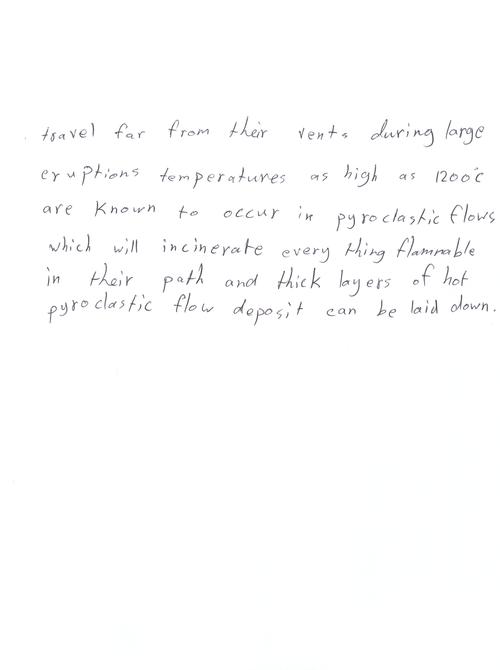 travel far from their vents during large
eruptions temperatures as high as 1200°c
are known to occur in pyroclastic flows
which will incinerate every thing flammable
in their path and thick layers of hot
pyroclastic flow deposit can be laid down.